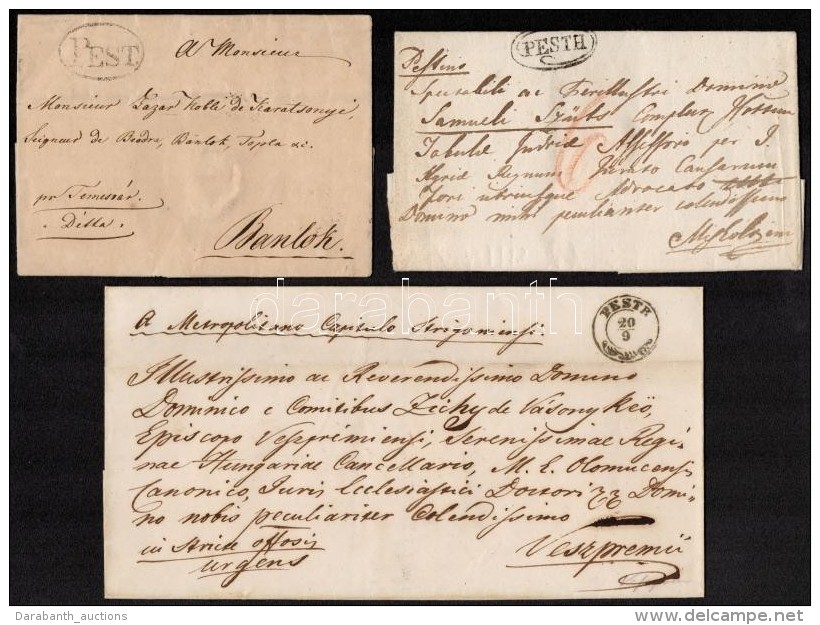 PEST.
A Monsieur
Monsieur Lazar Noble de Karatsonyi,
Seigneur de Beodra, Banlok, Topla &c.
pr Temesvár.
Détta.
Banlok.
PESTH
Pestino
Spectabili ac Perillustri Domino
Samueli Szüts Complur Hottuum
Tabulae Judriae Assessori per I.
Hgriae Regnum Jurato Causarum
Fori utriusque Advocato
Domino mihi peculianter colendissimo
Myskolzini
PESTH
20
9
A Metropolitano Capitulo Strigoniensi.
Illustrissimo ac Reverendissimo Domino
Dominico e Comitibus Zichy de Vásonykeö,
Episcopo Veszprémiensi, Serenissimae Regi-
nae Hungariae Cancellario, M. E. Olomucensi
Canonico, Juris Ecclesiastici Doctori Domi-
no nobis peculiariter Colendissimo
in Stricte offosis
urgens
Veszpremii
darabanth
Darabanth_auctions
delcampe.net